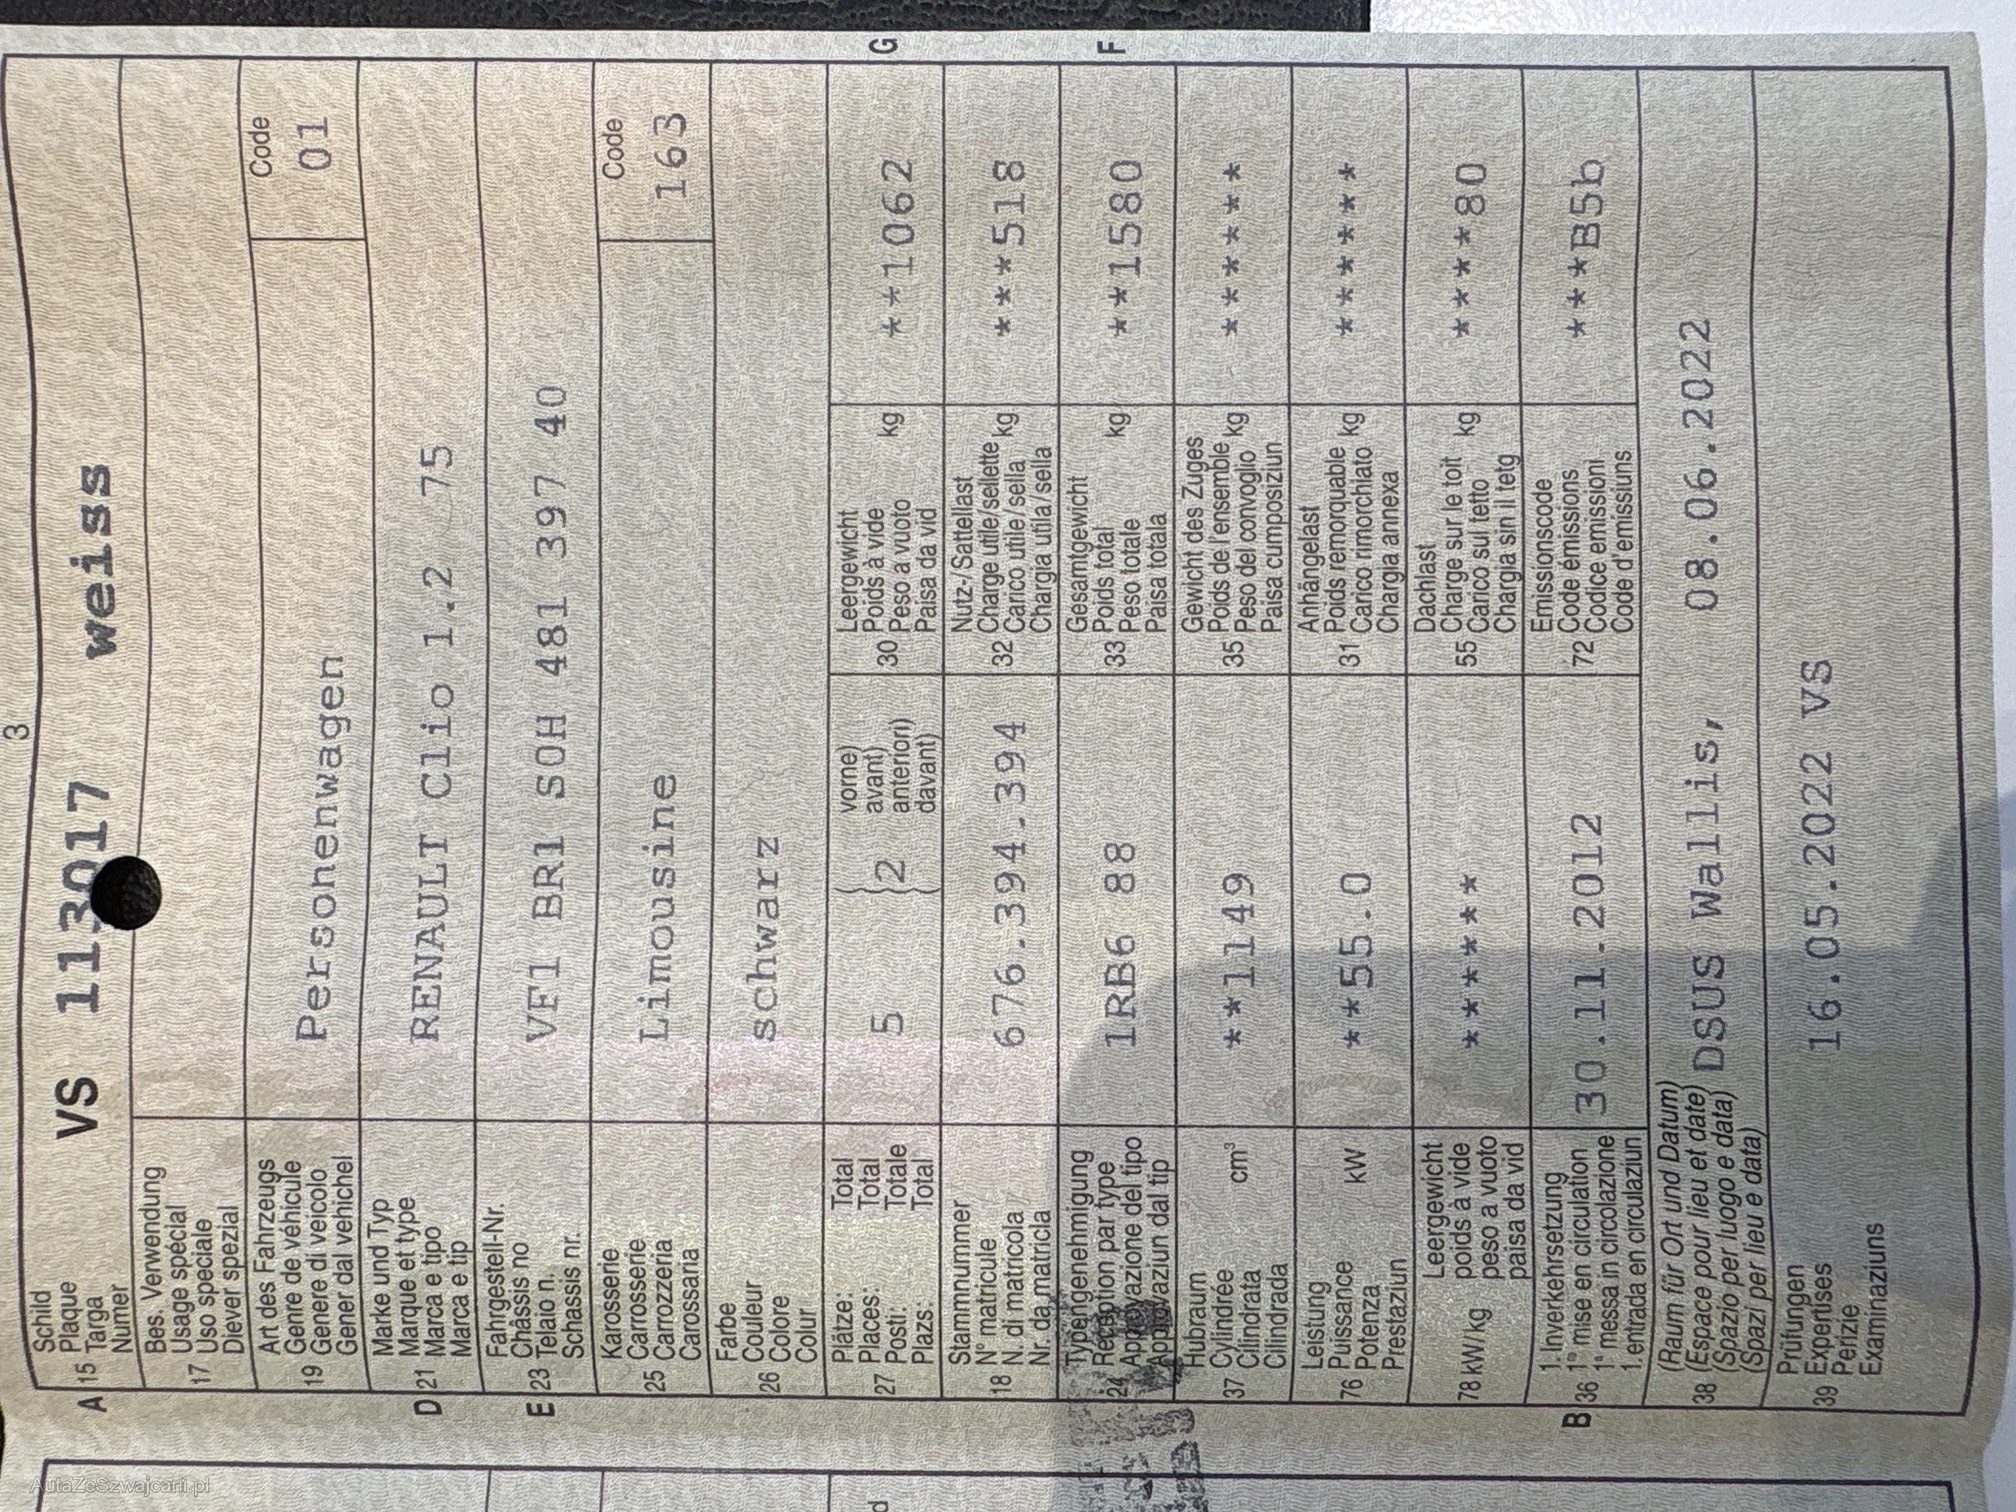 3
A 15 Schild
Plaque
Targa
Numer
VS 113017 weiss
17 Bes. Verwendung
Usage spécial
Uso speciale
Diever spezial
19 Art des Fahrzeugs
Genre de véhicule
Genere di veicolo
Gener dal vehichel
Personenwagen
Code
01
D 21 Marke und Typ
Marque et type
Marca e tipo
Marca e tip
RENAULT Clio 1.2 75
E 23 Fahrgestell-Nr.
Châssis no
Telaio n.
Schassis nr.
VF1 BR1 S0H 481 397 40
25 Karosserie
Carrosserie
Carrozzeria
Carossaria
Limousine
Code
163
26 Farbe
Couleur
Colore
Colur
schwarz
27 Plätze: Total
Places: Total
Posti: Totale
Plazs: Total
5
2
vorne)
avant)
anteriori)
davant)
30 Leergewicht
Poids à vide
Peso a vuoto
Paisa da vid
kg
**1062
G
18 Stammnummer
N° matricule
N. di matricola
Nr. da matricla
676.394.394
32 Nutz-/Sattellast
Charge utile/sellette
Carico utile/sella
Chargia utila/sella
kg
***518
24 Typengenehmigung
Réception par type
Approvazione del tipo
Approvaziun dal tip
1RB6 88
33 Gesamtgewicht
Poids total
Peso totale
Paisa totala
kg
**1580
F
37 Hubraum
Cylindrée
Cilindrata
Cilindrada
cm³
**1149
35 Gewicht des Zuges
Poids de l'ensemble
Peso del convoglio
Paisa cumposiziun
kg
*******
76 Leistung
Puissance
Potenza
Prestaziun
kW
**55.0
31 Anhängelast
Poids remorquable
Carico rimorchiato
Chargia annexa
kg
*******
78 kW/kg Leergewicht
poids à vide
peso a vuoto
paisa da vid
*******
55 Dachlast
Charge sur le toit
Carico sul tetto
Chargia sin il tetg
kg
*****80
B 36 1. Inverkehrsetzung
1re mise en circulation
1a messa in circolazione
1. entrada en circulaziun
30.11.2012
72 Emissionscode
Code émissions
Codice emissioni
Code d'emissiuns
***B5b
38 (Raum für Ort und Datum)
(Espace pour lieu et date)
(Spazio per luogo e data)
(Spazi per lieu e data)
DSUS Wallis, 08.06.2022
39 Prüfungen
Expertises
Perizie
Examinaziuns
16.05.2022 VS
AutaZeSzwajcarii.pl